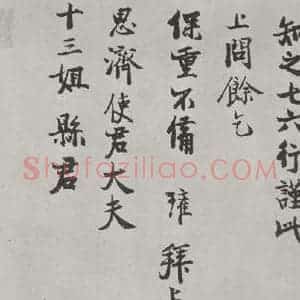 知之七六行謹此
上問餘乞
保重不備 拜上
思濟使君大夫
十三姐縣君
Shufaziliao.com